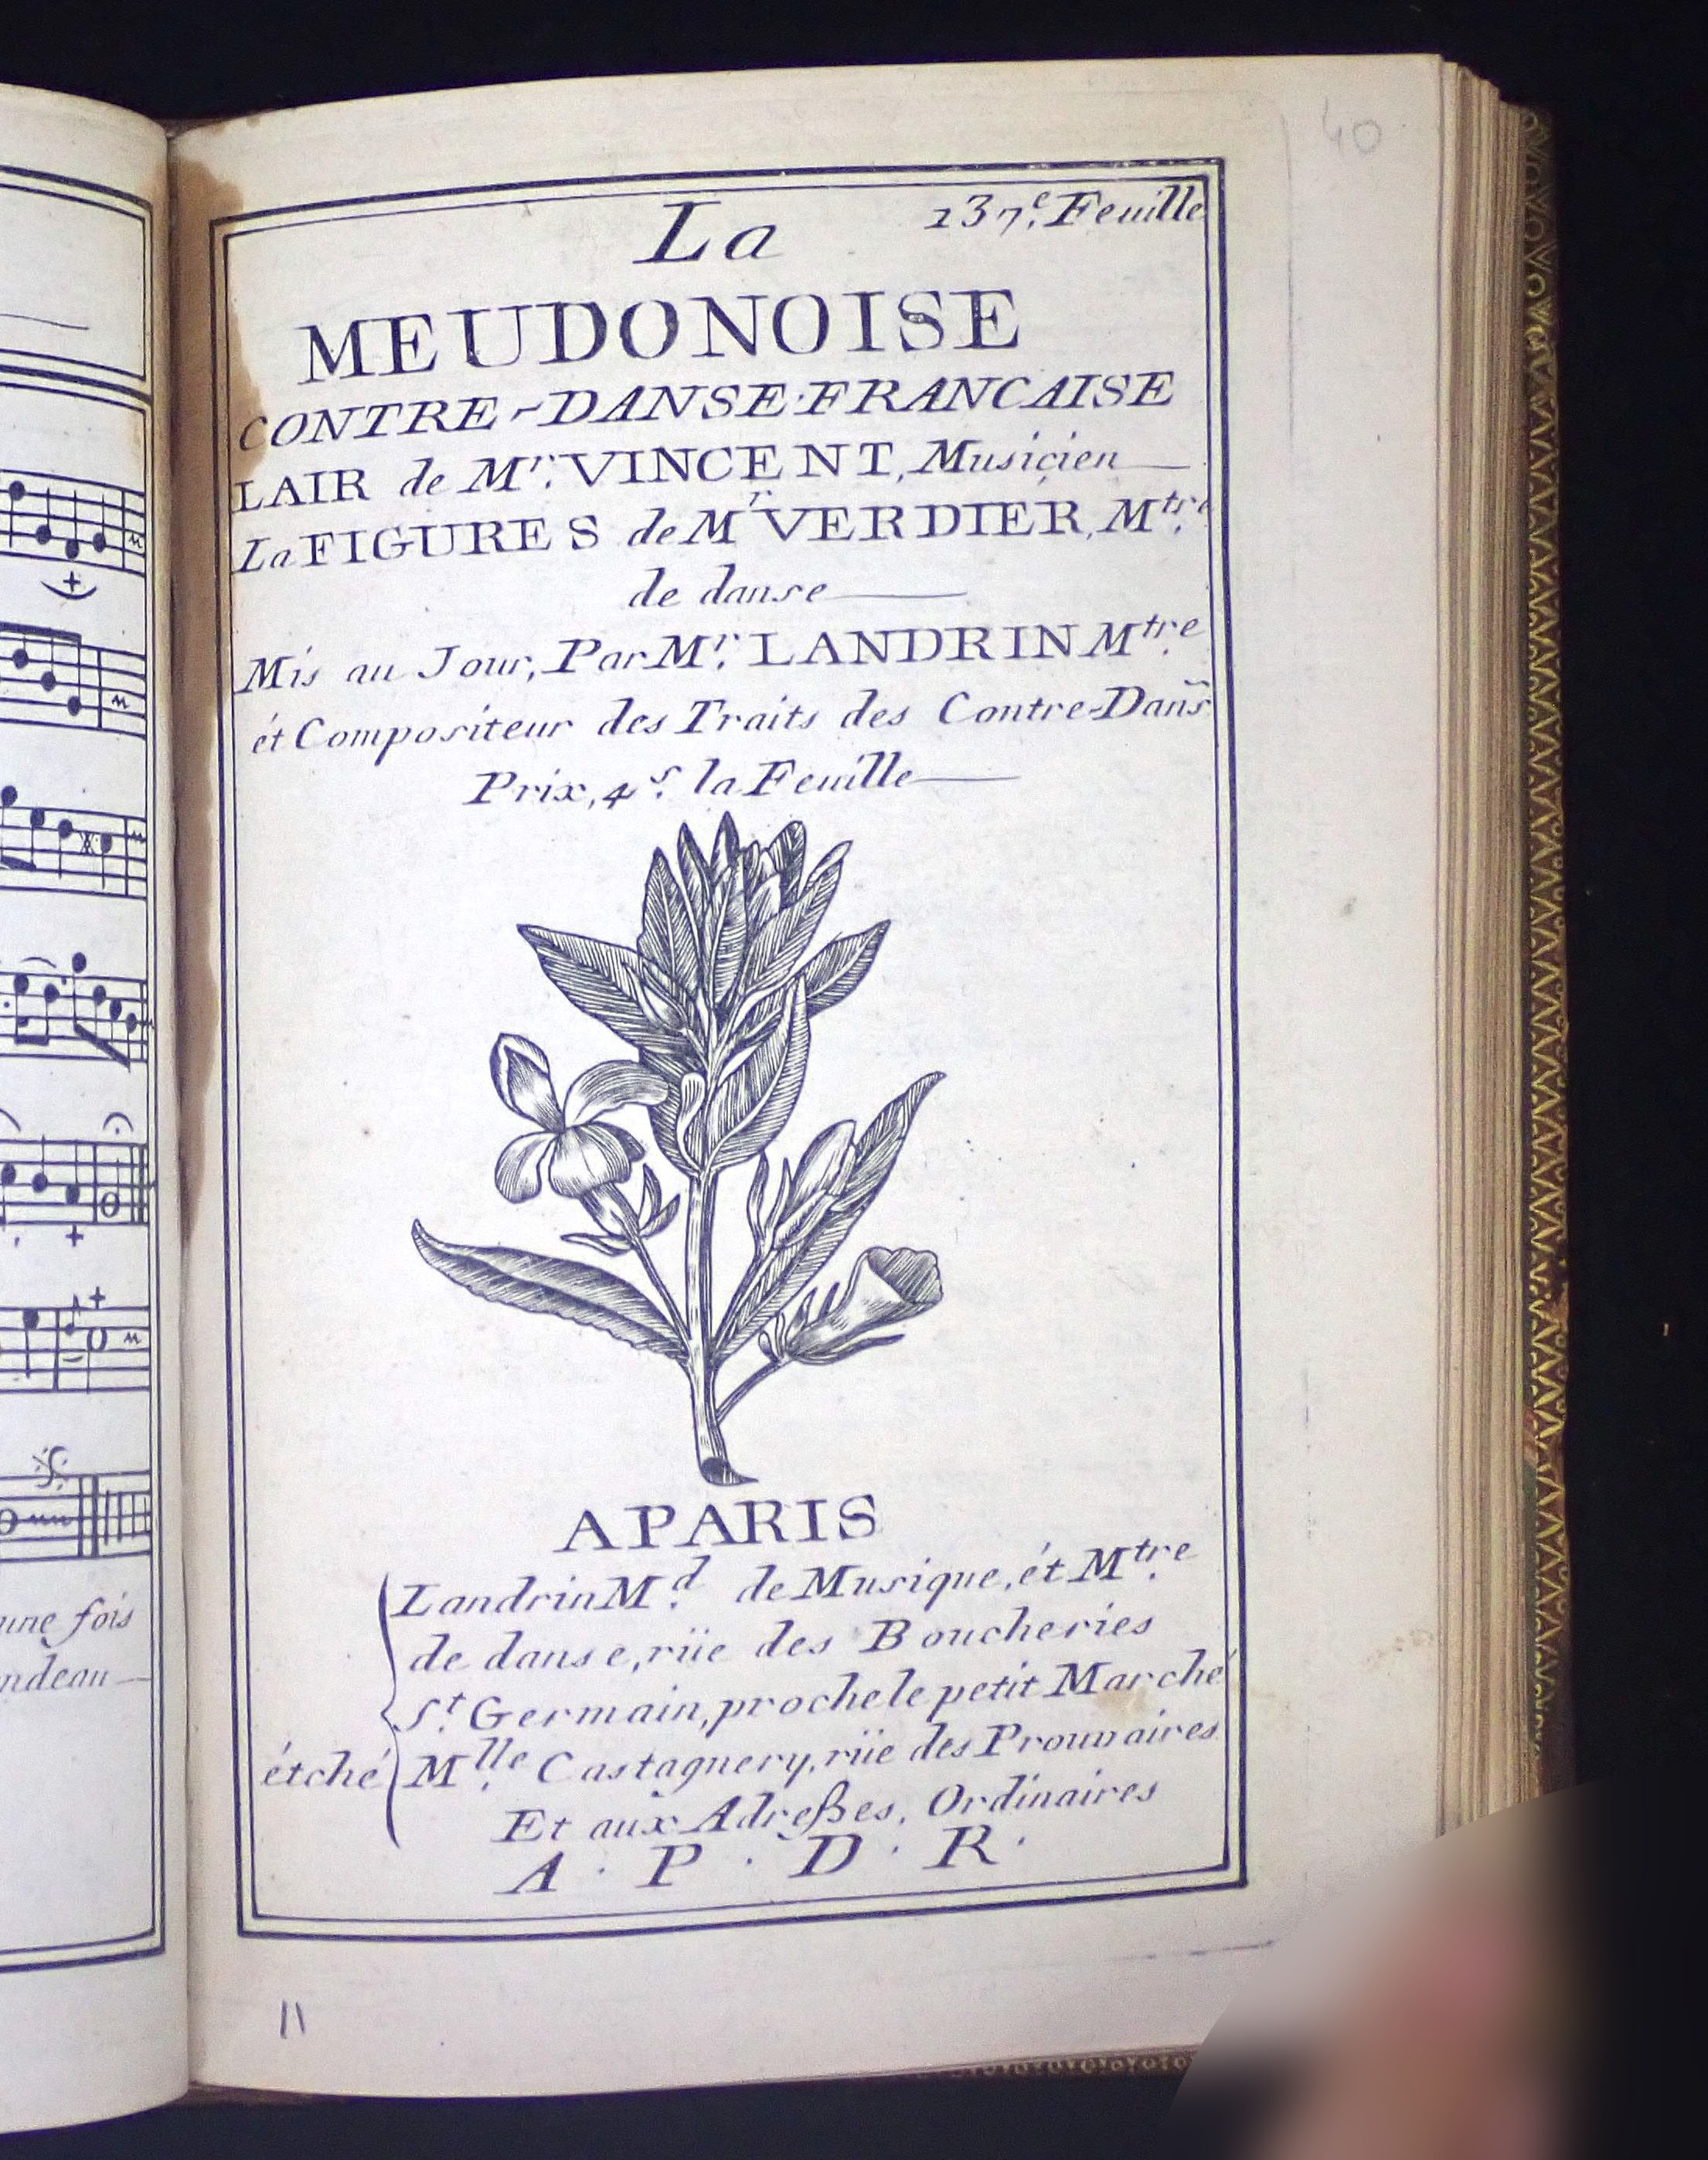 une fois
ndeau
40
137.e Feuille
La
MEUDONOISE
CONTRE-DANSE FRANCAISE
LAIR de Mr. VINCENT, Musicien
La FIGURES de Mr VERDIER, Mtre.
de danse
Mis au Jour, Par Mr. LANDRIN Mtre.
ét Compositeur des Traits des Contre-Dans̃
Prix, 4s. la Feuille
APARIS
Landrin Md. de Musique, ét Mtre.
de danse, rüe des Boucheries
St. Germain, proche le petit Marché
étché Mlle. Castagnery, rüe des Prouvaires
Et aux Adreßes, Ordinaires
A . P . D . R .
11